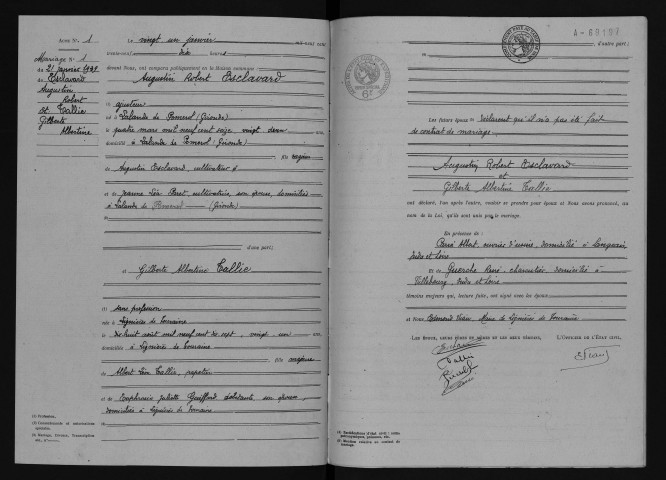 Acte N° 1
Mariage N° 1
du 21 janvier 1939
de Esclavard
Augustin
Robert
et Tallic
Gilberte
Albertine
Le vingt un janvier mil neuf cent
trente-neuf, dix heures
devant Nous, ont comparu publiquement en la Maison commune
Augustin Robert Esclavard
(1) ajusteur
né à Lalande de Pomerol (Gironde)
le quatre mars mil neuf cent seize vingt deux ans,
domicilié à Lalande de Pomerol (Gironde)
fils majeur
de Augustin Esclavard, cultivateur
et Jeanne Léa Baret, cultivatrice, son épouse, domiciliés
à Lalande de Pomerol (Gironde)
d'une part;
et Gilberte Albertine Tallic
(1) sans profession
née à Lignières de Touraine
le dix huit août mil neuf cent dix sept, vingt un ans,
domiciliée à Lignières de Touraine
fille majeure
de Albert Léon Tallic, papetier
et Euphrasie Juliette son épouse,
domiciliés à Lignières de Touraine
(1) Profession.
(2) Consentements et autorisations
spéciales.
d'autre part;
Les futurs époux déclarent qu'il n'a pas été fait
de contrat de mariage.
Augustin Robert Esclavard
et
Gilberte Albertine Tallic
ont déclaré, l'un après l'autre, vouloir se prendre pour époux et Nous avons prononcé, au
nom de la Loi, qu'ils sont unis par le mariage.
En présence de
Albert, ouvrier d'usine, domicilié à Langeais,
Indre et Loire
Et de René, charretier, domicilié à
Villebourg, Indre et Loire
témoins majeurs qui, lecture faite, ont signé avec les époux
et Nous Edmond Maire de Lignières de Touraine
L'Officier de l'État civil,